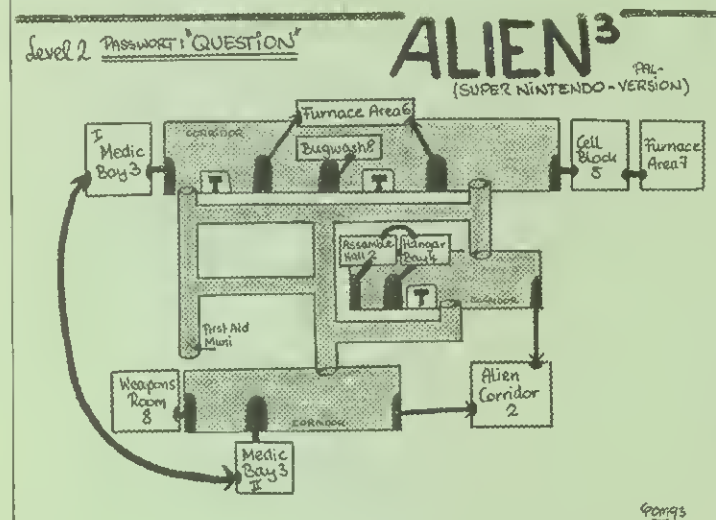 Level 2 PASSWORT: "QUESTION"
ALIEN³
(SUPER NINTENDO-PAL-VERSION)
Furnace Area 6
CORRIDOR
I
Medic
Bay 3
Bugwash 8
T
T
Cell
Block
5
Furnace
Area 7
Assamble
Hall 2
Hangar
Bay 4
T
CORRIDOR
First Aid
Muni
Weapons
Room
8
CORRIDOR
Alien
Corridor
2
Medic
Bay 3
II